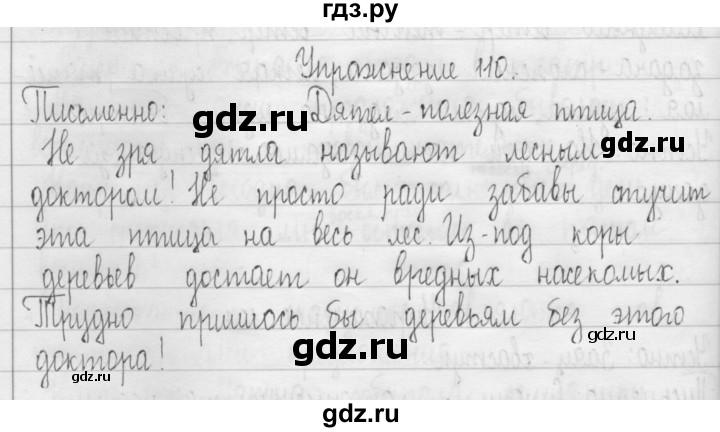 гдз.ру
Упражнение 110.
gdz.ru gdz.ru
Письменно: Дятел - полезная птица.
Не зря дятла называют лесным
gdz.ru
доктором! Не просто ради забавы стучит
эта птица на весь лес. Из-под коры
деревьев достает он вредных насекомых.
Трудно пришлось бы деревьям без этого
gdz.ru gdz.ru
доктора!
gdz.ru
gdz.ru